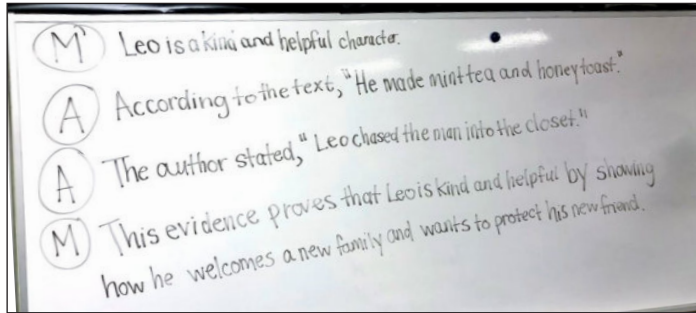 M Leo is a kind and helpful character.
A According to the text, "He made mint tea and honey toast."
A The author stated, "Leo chased the man into the closet."
M This evidence proves that Leo is kind and helpful by showing
how he welcomes a new family and wants to protect his new friend.